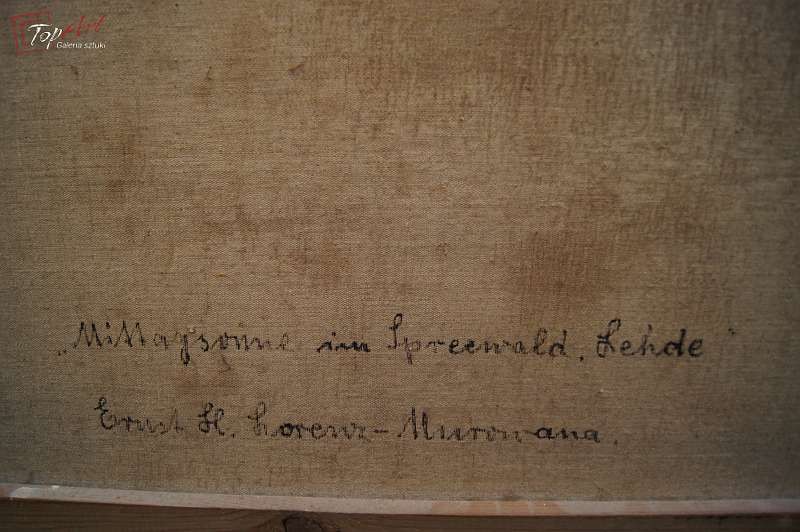 Topart
Galeria sztuki
„Mittagsonne im Spreewald, Lehde"
Ernst H. Lorenz-Murowana.